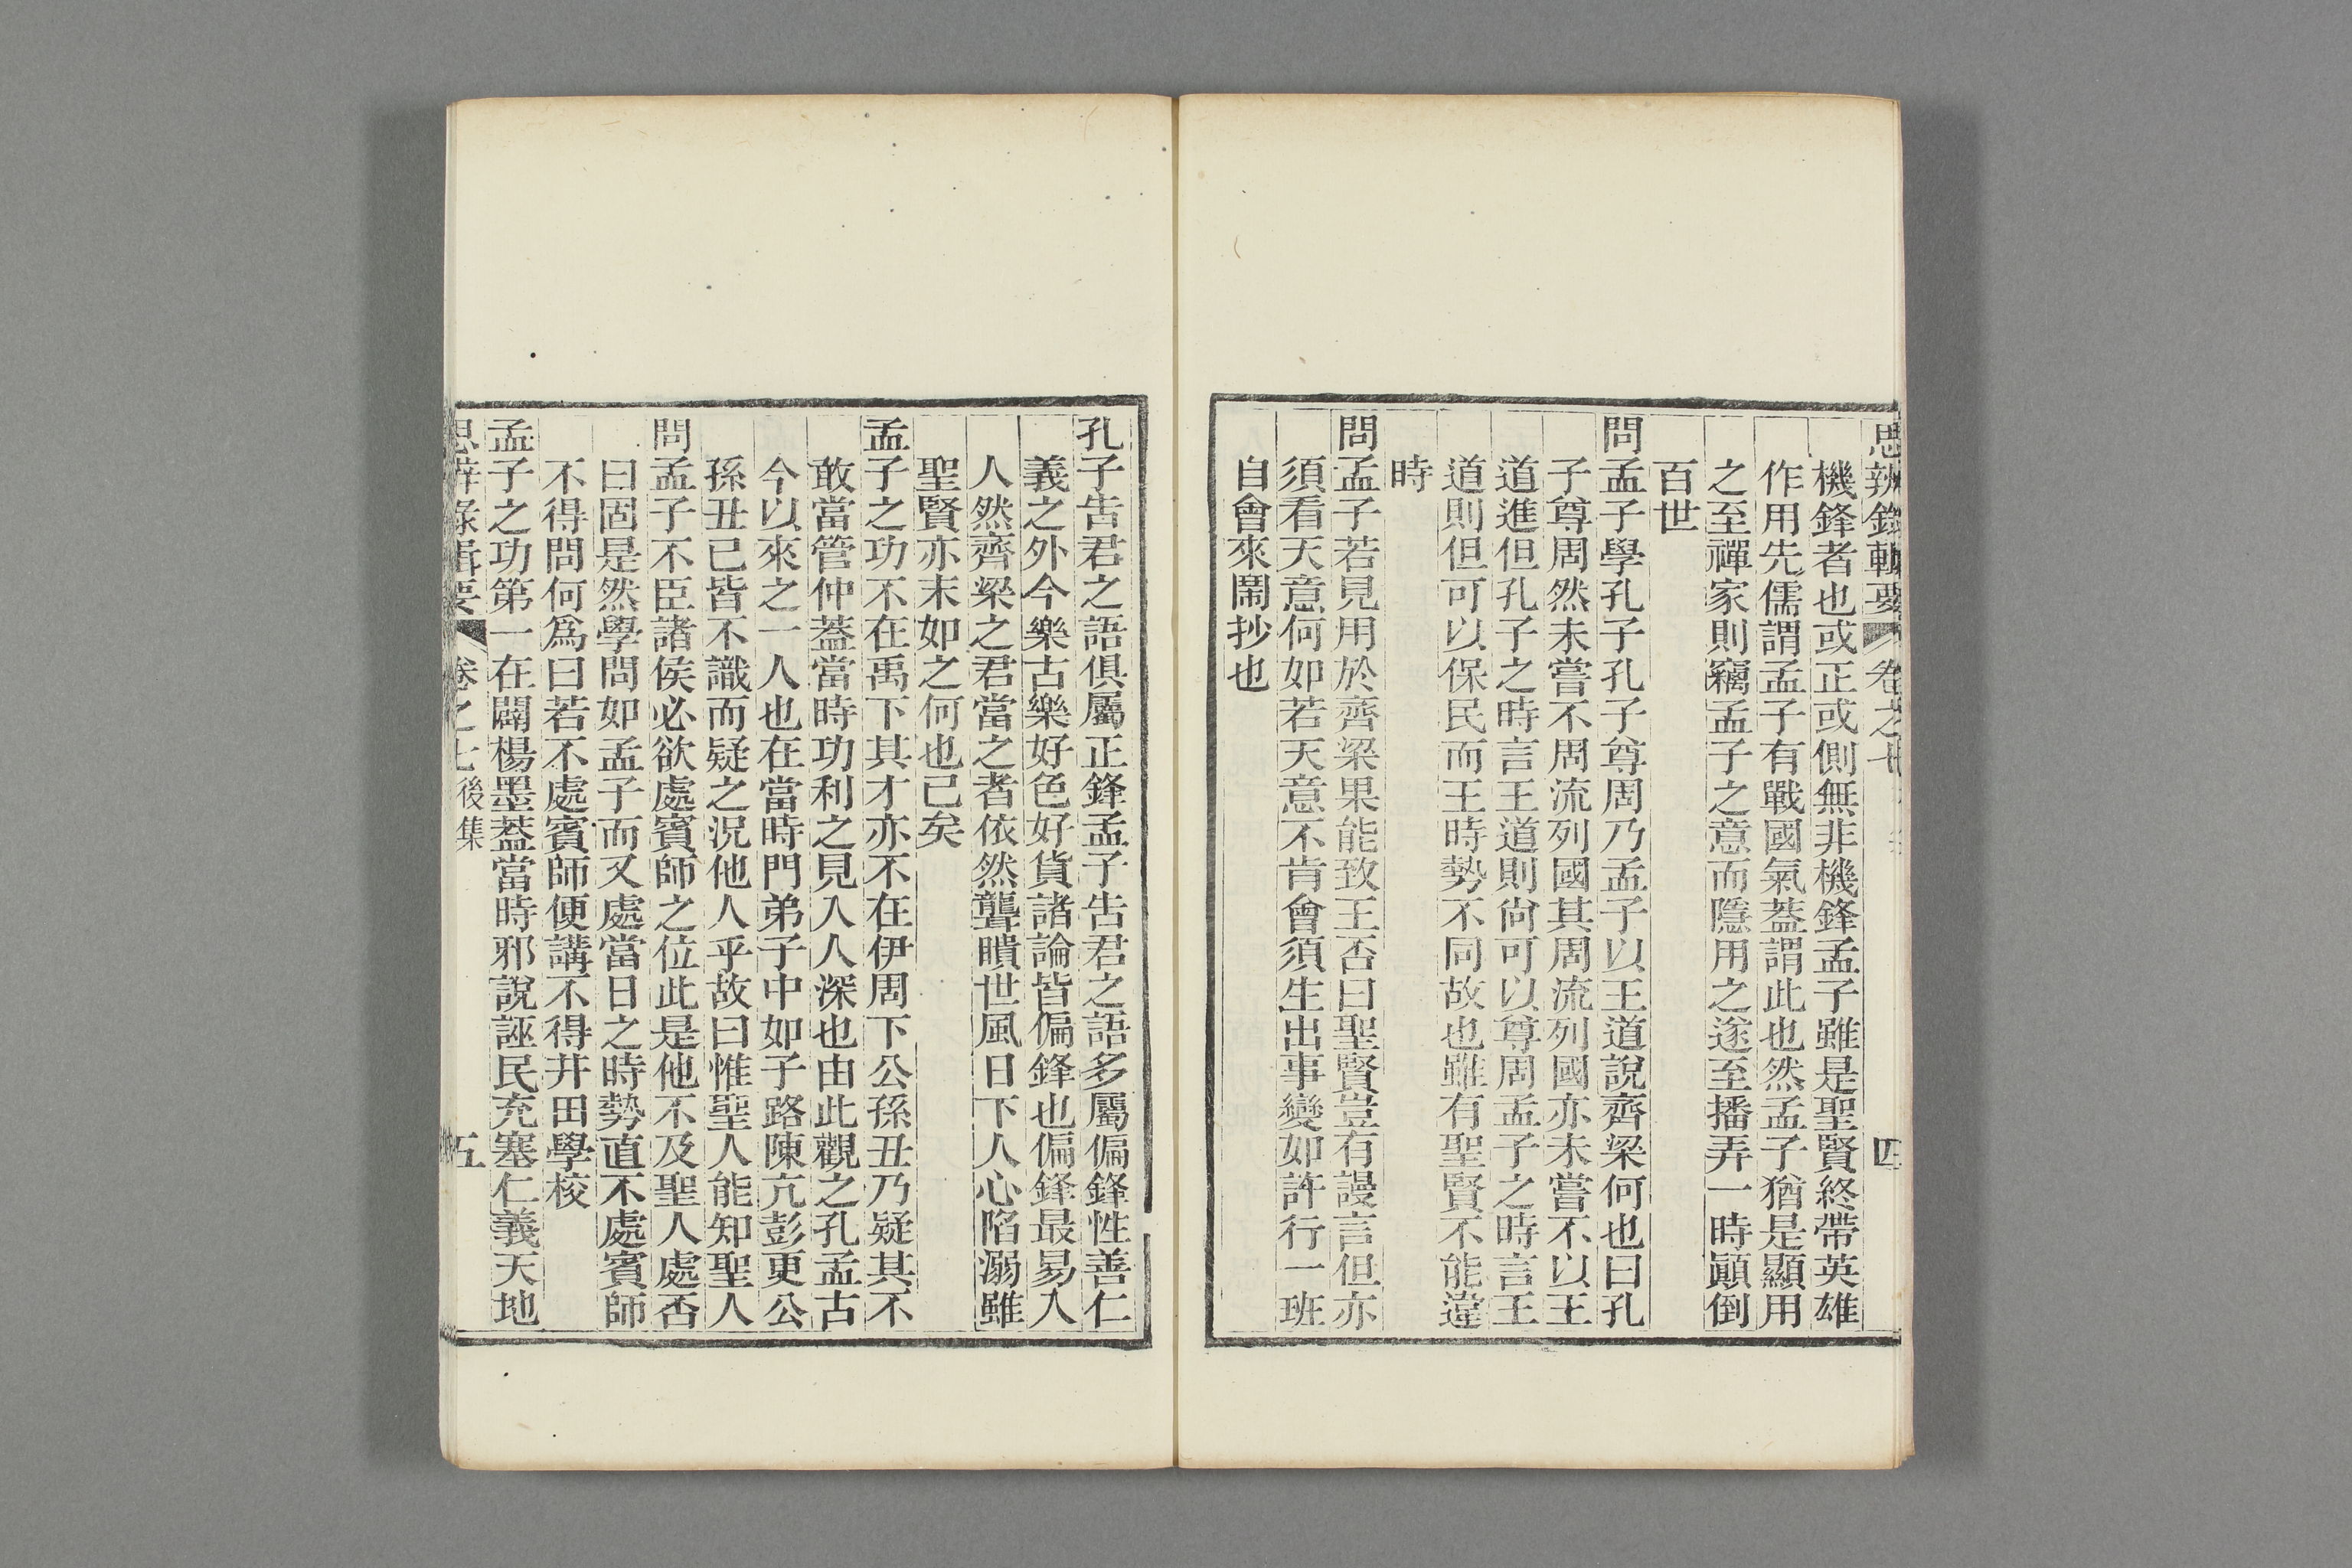 思辨錄輯要 卷之七 四
機鋒者也或正或側無非機鋒孟子雖是聖賢終帶英雄
作用先儒謂孟子有戰國氣蓋謂此也然孟子猶是顯用
之至禪家則竊孟子之意而隱用之遂至播弄一時顚倒
百世
問孟子學孔子孔子尊周乃孟子以王道說齊梁何也曰孔
子尊周然未嘗不周流列國其周流列國亦未嘗不以王
道進但孔子之時言王道則尙可以尊周孟子之時言王
道則但可以保民而王時勢不同故也雖有聖賢不能違
時
問孟子若見用於齊梁果能致王否曰聖賢豈有謾言但亦
須看天意何如若天意不肯會須生出事變如許行一班
自會來鬧抄也
孔子告君之語俱屬正鋒孟子告君之語多屬偏鋒性善仁
義之外今樂古樂好色好貨諸論皆偏鋒也偏鋒最易入
人然齊梁之君當之者依然聾瞶世風日下人心陷溺雖
聖賢亦末如之何也已矣
孟子之功不在禹下其才亦不在伊周下公孫丑乃疑其不
敢當管仲蓋當時功利之見入人深也由此觀之孔孟古
今以來之一人也在當時門弟子中如子路陳亢彭更公
孫丑已皆不識而疑之況他人乎故曰惟聖人能知聖人
問孟子不臣諸侯必欲處賓師之位此是他不及聖人處否
曰固是然學問如孟子而又處當日之時勢直不處賓師
不得問何爲曰若不處賓師便講不得井田學校
孟子之功第一在闢楊墨蓋當時邪說誣民充塞仁義天地
思辨錄輯要 卷之七後集 五